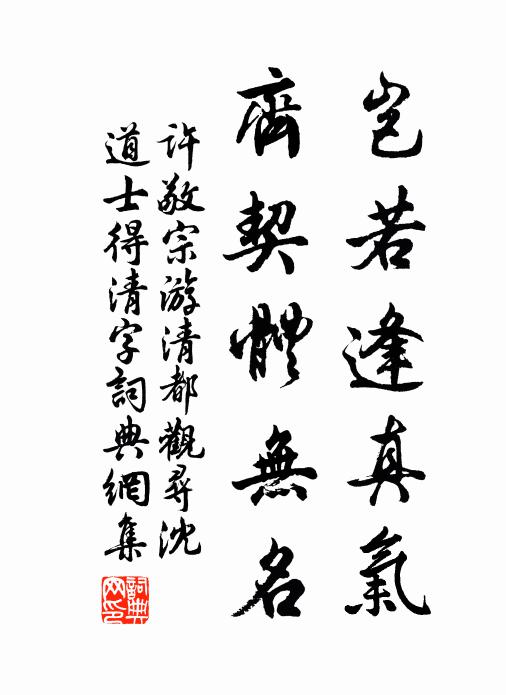 豈若逢真氣
齊契體無名
許敬宗游清都觀尋沈
道士得清字詞典網集
詞典
网印